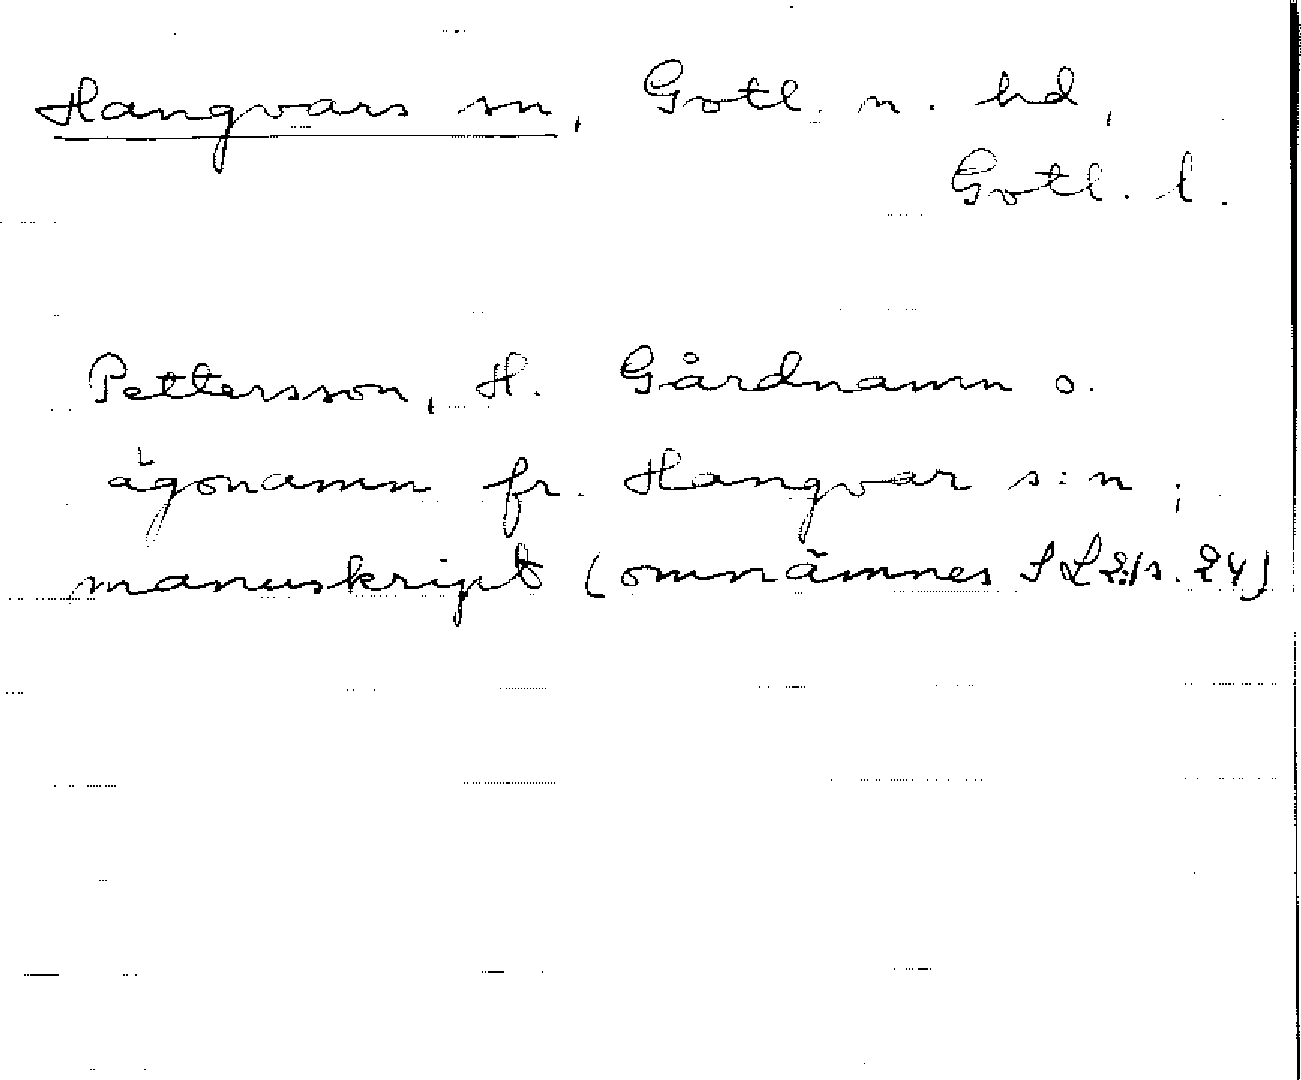 Hangvars sn, Gotl. n. hd,
Gotl. l.
Pettersson, H. Gårdnamn o.
ägonamn fr. Hangvar s:n;
manuskript (omnämnes s. 24)